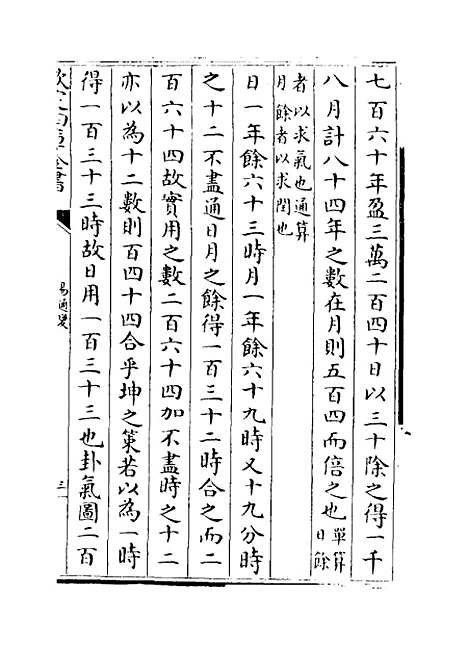 七百六十年盈三萬二百四十日以三十除之得一千
八月計八十四年之數在月則五百四而倍之也單算日餘
者以求氣也通算月餘者以求閏也
日一年餘六十三時月一年餘六十九時又十九分時
之十二不盡通日月之餘得一百三十二時合之而二
百六十四故實用之數二百六十四加不盡時之十二
亦以為十二數則百四十四合乎坤之策若以為一時
得一百三十三時故日用一百三十三也卦氣圖二百
欽定四庫全書
易通變
三